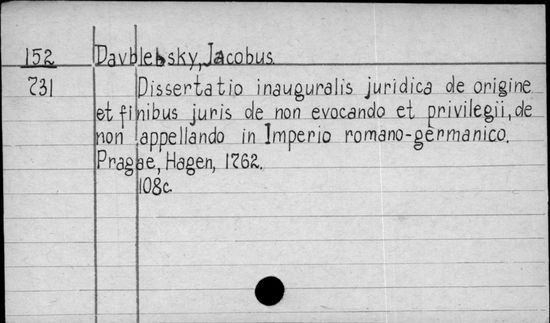 152 Davblebsky, Jacobus
731 Dissertatio inauguralis juridica de origine
et finibus juris de non evocando et privilegii, de
non appellando in Imperio romano-germanico.
Pragae, Hagen, 1762.
108c.